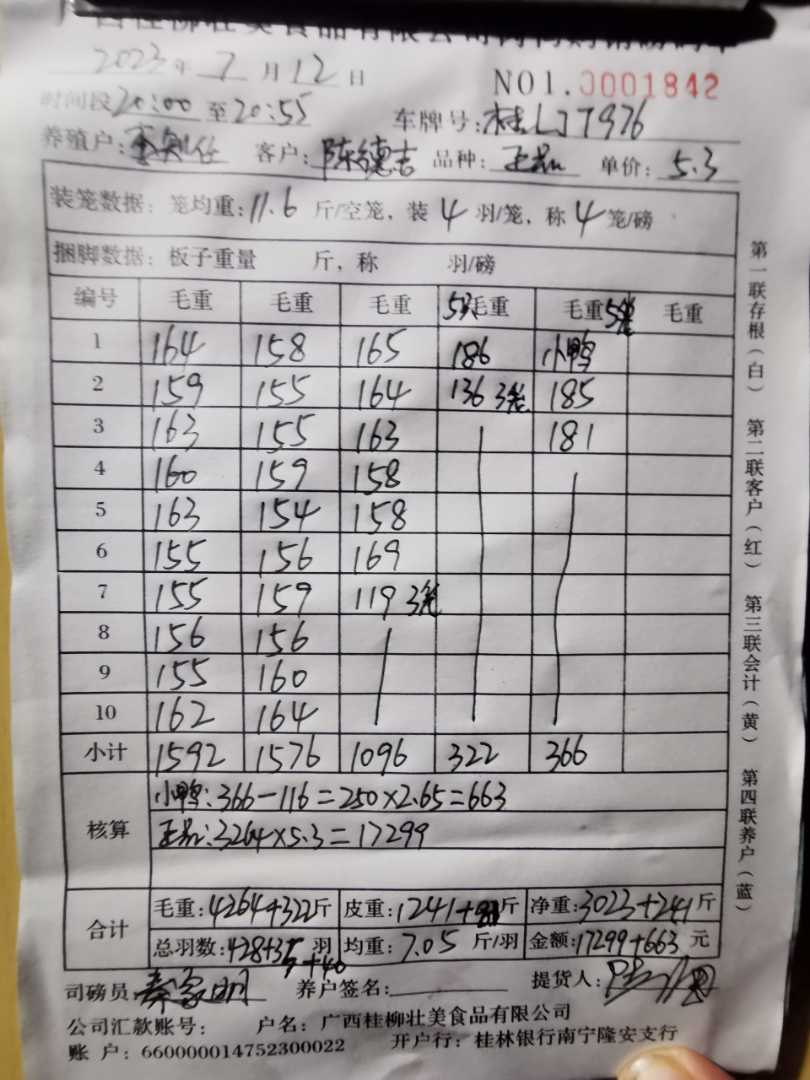 广西桂柳壮美食品有限公司
2023年7月12日 NO1.0001842
时间段20:00至20:55 车牌号:桂LJT976
养殖户: 客户:陈德吉 品种:正品 单价:5.3
装笼数据:笼均重:11.6斤/空笼,装4羽/笼,称4笼/磅
捆脚数据:板子重量 斤,称 羽/磅
编号 毛重 毛重 毛重 5只毛重 毛重5笼 毛重
1 164 158 165 186 小鸭
2 159 155 164 136 3笼 185
3 163 155 163 181
4 160 159 158
5 163 154 158
6 155 156 169
7 155 159 119 3笼
8 156 156
9 155 160
10 162 164
小计 1592 1576 1096 322 366
核算 小鸭:366-116=250×2.65=663
正品:3264×5.3=17299
合计 毛重:4264+322斤 皮重:1241+斤 净重:3023+241斤
总羽数:428+35羽 均重:7.05斤/羽 金额:17299+663元
+40
司磅员 养户签名: 提货人:
公司汇款账号: 户名:广西桂柳壮美食品有限公司
账 户:660000014752300022 开户行:桂林银行南宁隆安支行
第一联存根(白) 第二联客户(红) 第三联会计(黄) 第四联养户(蓝)